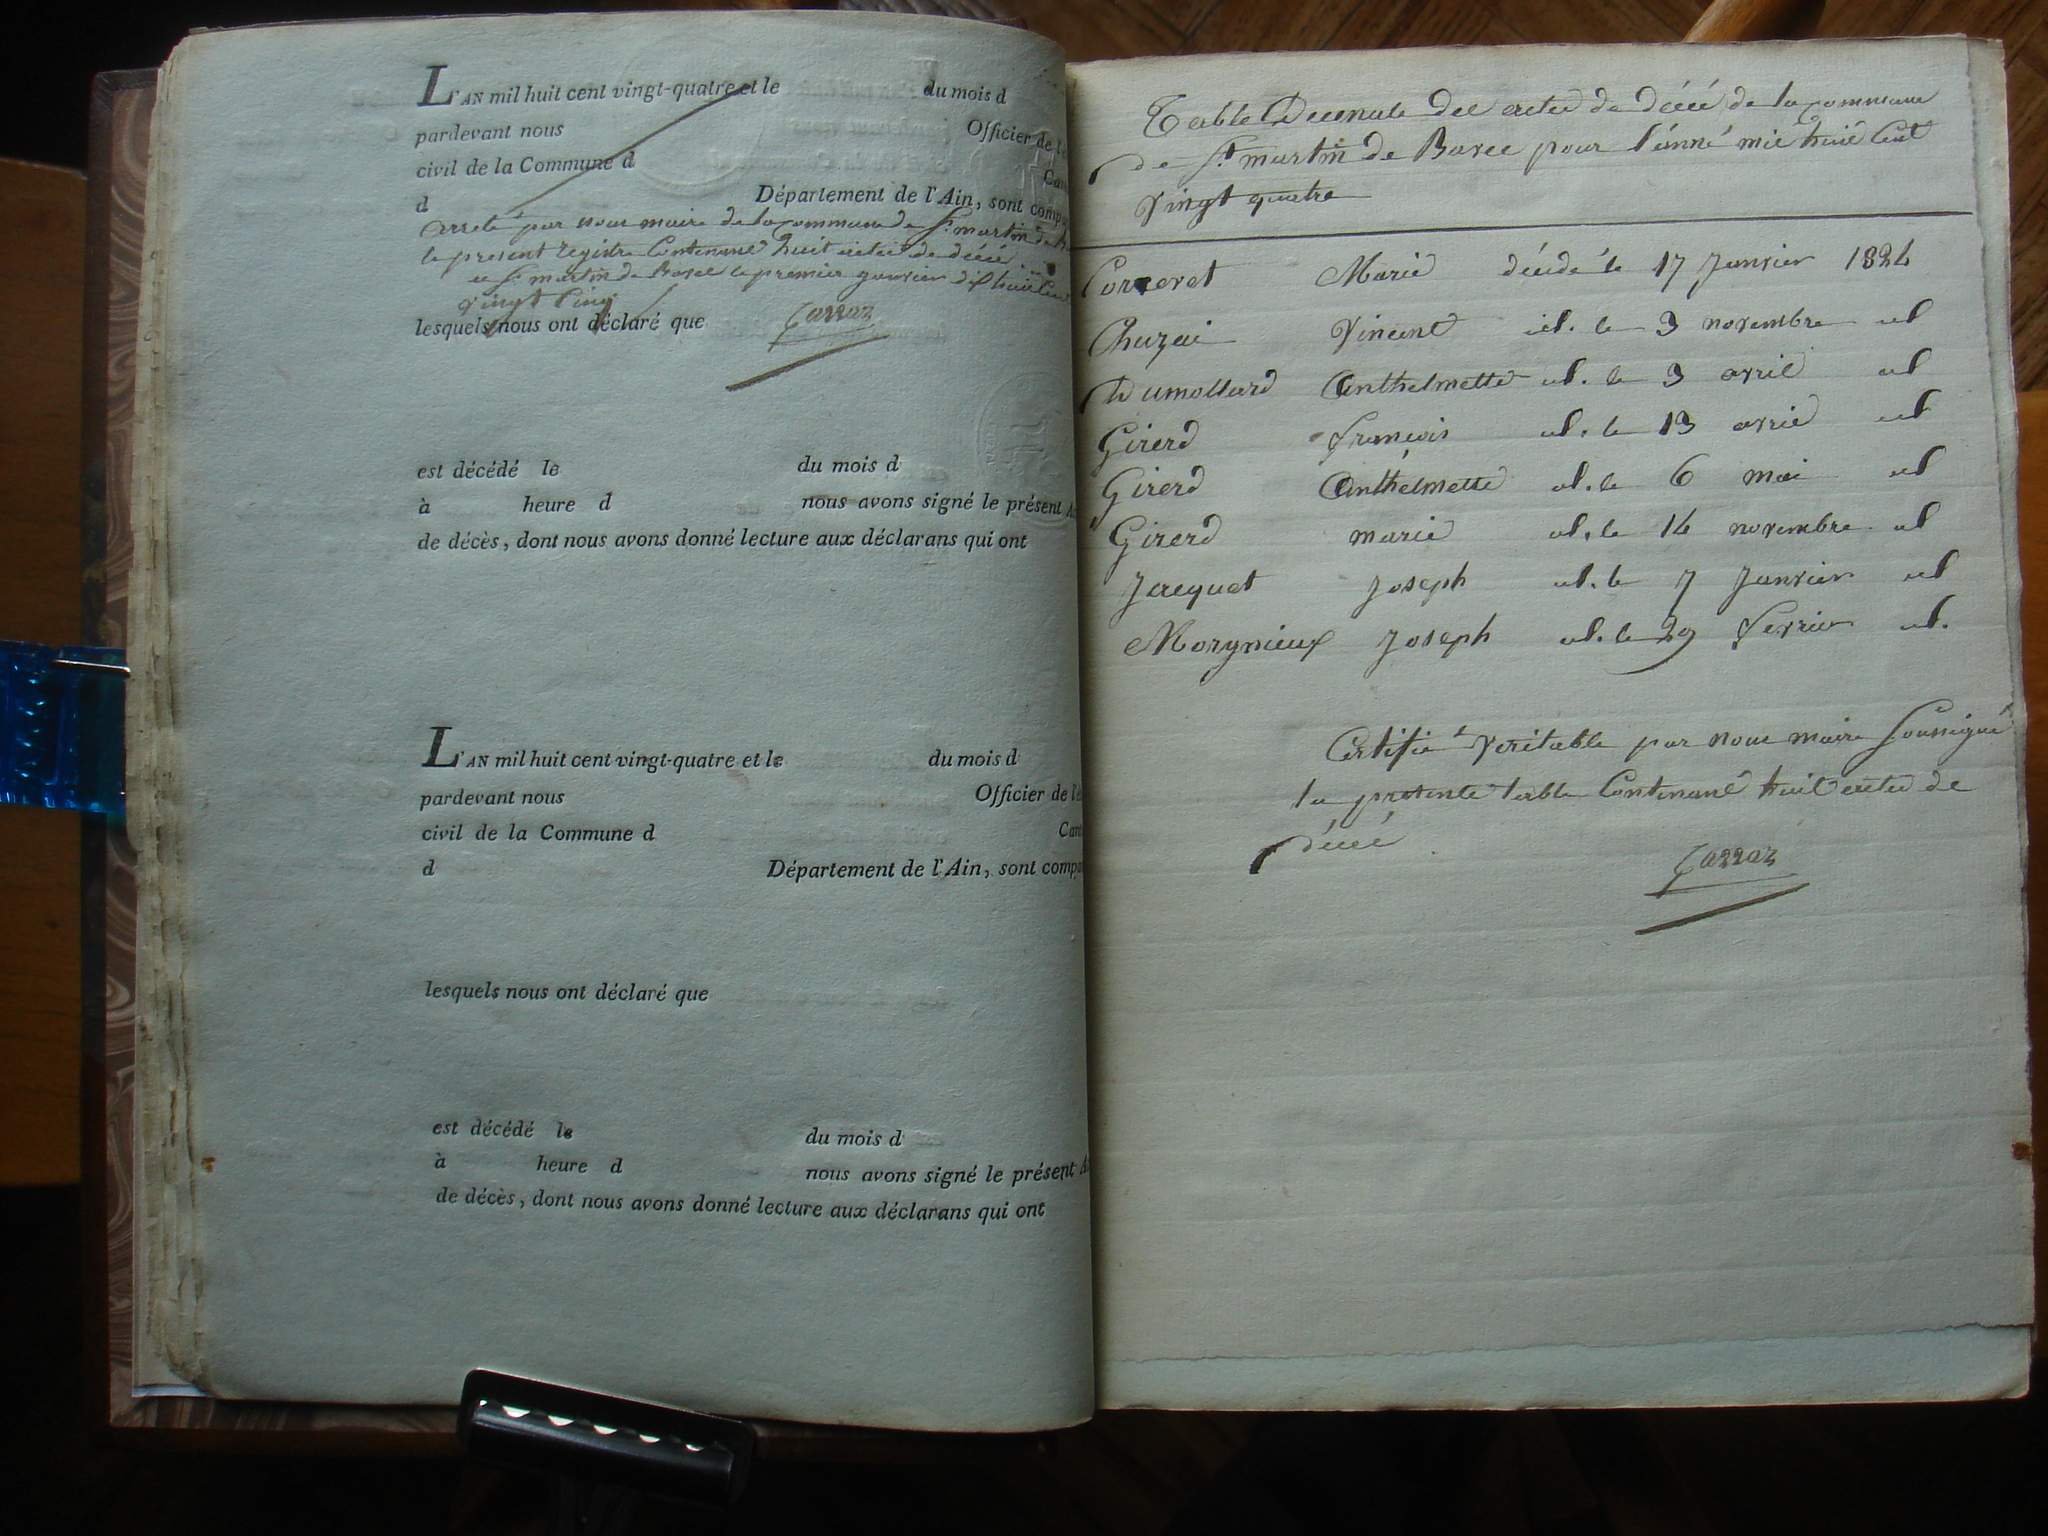 L'AN mil huit cent vingt-quatre et le du mois d
pardevant nous Officier de l'é
civil de la Commune d Can
d Département de l'Ain, sont compa
arreté par nous maire de la commune de St martin de B
le present registre Contenant huit actes de décés
a St martin de Bavel le premier janvier dix huit Cent
vingt Cinq
lesquels nous ont déclaré que Carraz
est décédé le du mois d
à heure d nous avons signé le présent A
de décès, dont nous avons donné lecture aux déclarans qui ont
L'AN mil huit cent vingt-quatre et le du mois d
pardevant nous Officier de l'é
civil de la Commune d Can
d Département de l'Ain, sont compa
lesquels nous ont déclaré que
est décédé le du mois d
à heure d nous avons signé le présent A
de décès, dont nous avons donné lecture aux déclarans qui ont
Table Decenale des actes de décés de la commune
de St martin de Bavel pour l'anné mil huit Cent
Vingt quatre
Marie décédé le 17 Janvier 1824
Chuzai Vincent id. le 3 novembre id
Dumollard Anthelmette id. le 3 avril id
Girerd François id. le 13 avril id
Girerd Anthelmette id. le 6 mai id
Girerd marie id. le 14 novembre id
Jacquet Joseph id. le 7 Janvier id
Morgnieux Joseph id. le 29 fevrier id.
Certifié Veritable par nous maire Soussigné
la presente table Contenant huit actes de
décés
Carraz